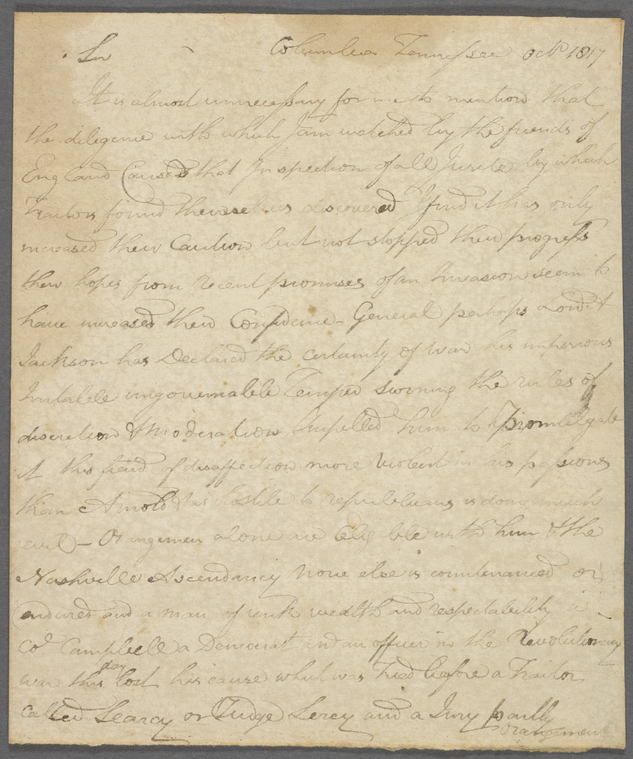 Sir Columbia Tennessee Octr 1817
It is almost unnecessary for me to mention that
the diligence with which I am watched by the friends of
England Caused that Inspection of all by which
Traitors found themselves discovered I find it has only
increased their Caution but not stopped their progress
their hopes from recent promises of an Invasion seem to
have increased their Confidence - General perhaps Lord
Jackson has Declared the certainty of war his imperious
Irritable ungovernable Temper scorning the rules of
discretion & Moderation Impelled him to Promulgate
it this fiend of disaffection more violent in his passions
than Arnold & as hostile to republicans is doing much
evil - Orangemen alone are eligible with him & the
Nashville Ascendancy None else is countenanced or
endured and a man of rank wealth and respectability is
Col Campbell a Democrat and an officer in the Revolutionary
war this day lost his cause which was Tried before a Traitor
Called Searcy or Judge Sercy and a Jury partly
Orangemen